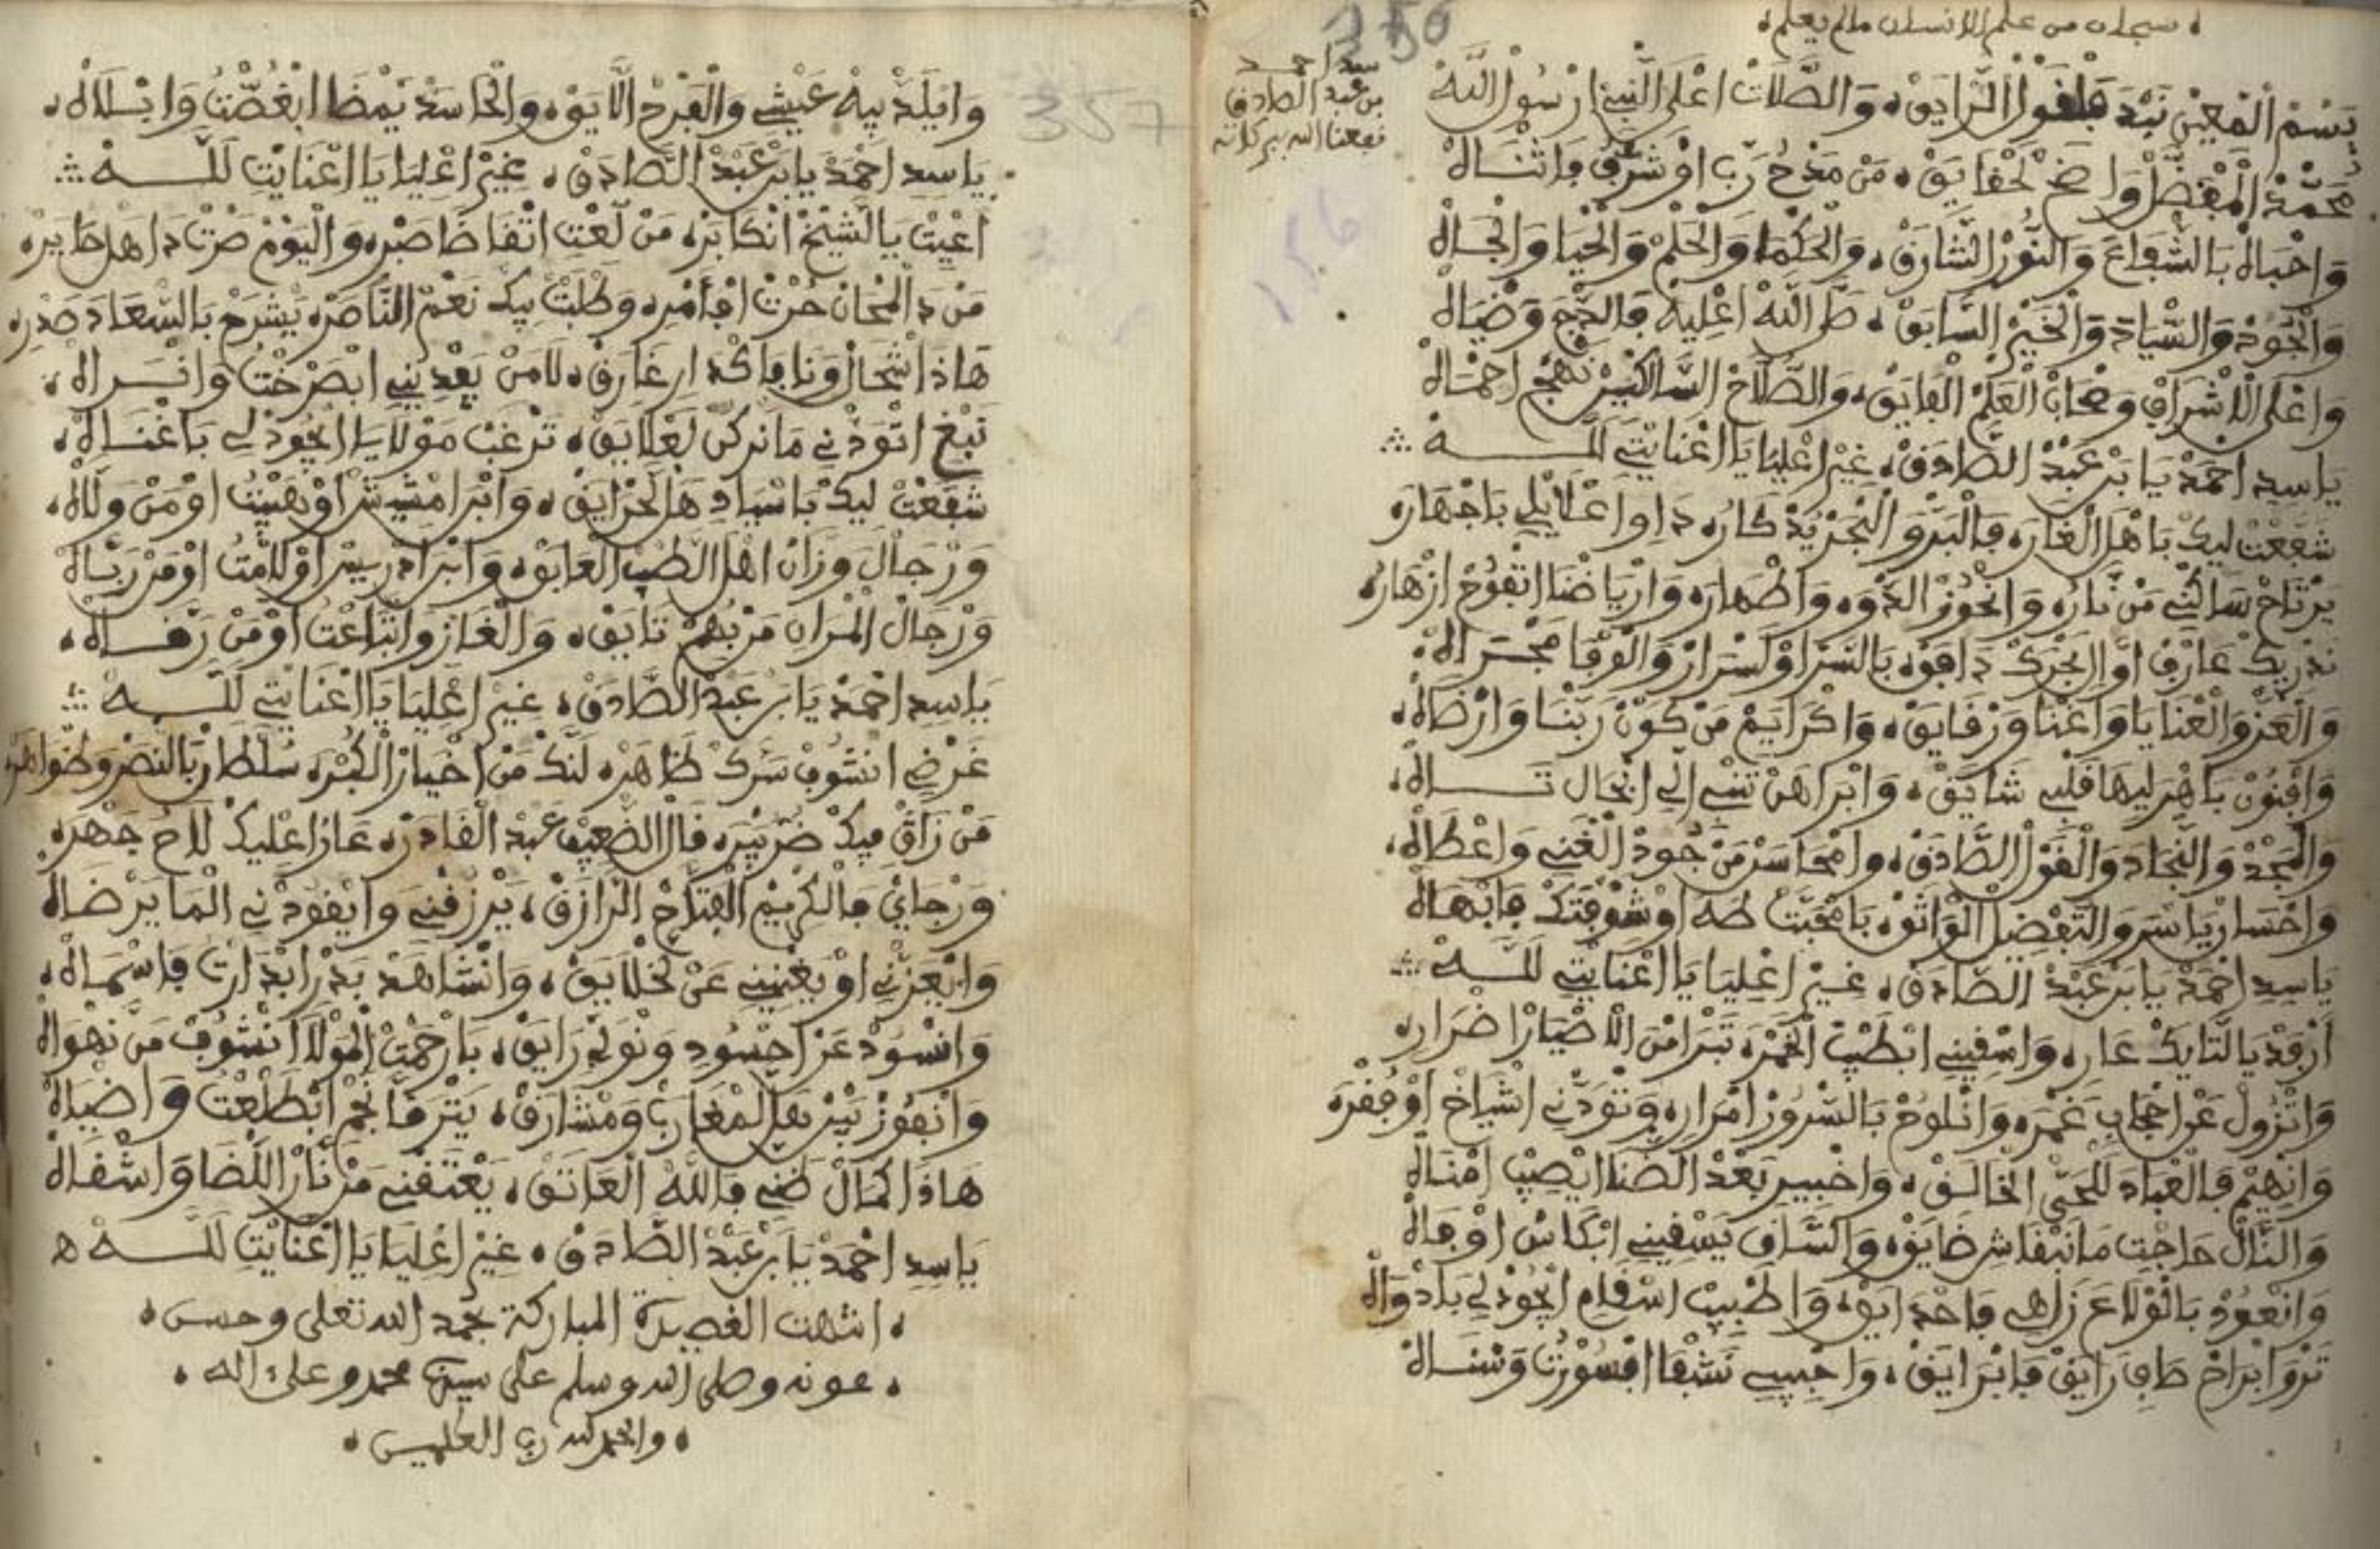 سبحان من علم الانسان مالم يعلم
سيد احمد
بن عبد الصادق
نفعنا الله ببركاته
بَسْمْ الْمُعِينْ نَبْدَ فَلْقَوْلْ الرَّايَقْ، وَالصَّلَاتْ اعْلَى النَّبِي رْسُولْ اللَّهْ
مُحَمَّدْ الْمُفَضَّلْ وَاضَحْ لَحْقَايَقْ، مَنْ مَدْحُ رَبِّ اوْ شَرَّفْ فَاثْنَاهْ
وَاحْبَاهْ بَالشَّفَاعَ وَالنُّورْ الشَّارَقْ، وَالْحَكْمَا وَالْحَلْمْ وَالْحْيَا وَالْجَاهْ
وَالْجُودْ وَالسِّيَادَ وَالْخَيْرْ السَّابَقْ، صَلَّى اللَّهْ اعْلِيهْ فَالدَّجِ وَضْيَاهْ
وَاعْلَى الْاشْرَافْ وَصْحَابْ الْعَلْمْ الْفَايَقْ، وَالصُّلَّاحْ السَّالْكِينْ نَهْجْ احْمَاهْ
يَاسِيدِ احْمَدْ يَا بَنْ عَبْدْ الصَّادَقْ، غِيرْ اعْلِيَا يَا اعْنَايْتِي لَلَّهْ
شَفَعْتْ لِيكْ بَاهْلْ الْغَارَه فَالْبَرّْ وَ الْبْحَرْ يَدْكَارُه دَاوِا عْلَايْلِي بَاجْهَارَه
يَرْتَاحْ سَاكْنِي مَنْ نَارُه وَانْحُوزْ الدّْوَه وَاطْهَارَه وَارْيَاضْنَا اتْفُوحْ ازْهَارُه
نَدْرِيكْ عَارَفْ اوَّالَجْرَكْ دَافَقْ، بَالسَّرْ اوْ لَسْرَارْ وَالْفَرْقَا مَجْرَاهْ
وَالْعَزْ وَالْعْنَايَا وَاعْنَا وَرْقَايَقْ، وَاكْرَايَمْ مَنْ كَوَّنْ رَبْنَا وَارْضَاهْ
وَافْنُونْ بَاهْرَ لِيهَا قَلْبِي شَايَقْ، وَابْرَاهَنْ تَنْبِي الْحَالْ تَرَاهْ
وَالْمَجْدْ وَالنَّجَادَ وَالْقَوْلْ الصَّادَقْ، وَامْحَاسَنْ مَنْ جُودْ الْغْنِي وَاعْطَاهْ
وَاحْسَانْ يَاسَرْ وَالتَّفْضِيلْ الْوَاثَقْ، بَامْحَبَّتْ طَهَ اوْ شَوْقْتَكْ فَابْهَاهْ
يَاسِيدِ احْمَدْ يَا بَنْ عَبْدْ الصَّادَقْ، غِيرْ اعْلِيَا يَا اعْنَايْتِي لَلَّهْ
ارْفَدْ يَا لْتَايَكْ عَارِه وَاسْقِينِي ابْطِيبْ الْخَمْرَه تَبْرَا مْنَ الْاضْيَارْ اضْرَارِه
وَاتْزُولْ عَنْ احْجَابِي غَمْرَه وَانْلُوحْ بَالسّْرُورْ امْرَارِه وَتْوَدّْنِي اشْيَاخْ اوْ فُقْرَه
وَانْهِيمْ فَالْعْبَادَ لَلْحَيّْ الْخَالَقْ، وَاخْبِيرْ بَعْدْ الضّْنَا ايْصِيبْ امْنَاهْ
وَالنَّالْ حَاجْتِ مَا نَبْقَاشِ ضَايَقْ، وَالسَّاقِي يَسْقِينِي ابْكَاسُ اوْفَاهْ
وَانْعُودْ بَالْوْلَاعَ زَاهِي فَاحْدَايَقْ، وَاطْبِيبْ اسْقَامِي ايْجُودْ لِي بَادْوَاهْ
تَزْوَا بْرَاحْ صَافِي رَايَقْ فَابْرَايَقْ، وَاحْبِيبِي نَشْفَا ابْسُورْتْ وَسْنَاهْ
وَايْلَدّْ بِيهْ عَيْشِي وَالْفَرْحْ الْلَايَقْ، وَالْحَاسَدْ يَمْضَا ابْغُصّْتُ وَابْلَاهْ
يَاسِيدِ احْمَدْ يَا بَنْ عَبْدْ الصَّادَقْ، غِيرْ اعْلِيَا يَا اعْنَايْتِي لَلَّهْ
اعْيِتْ يَا الشِّيخْ انْكَابَرْه مَنْ لَعْتِ اتْقَاضَا صَبْرِه وَالْيُومْ صَرْتْ دَاهَلْ حَايَرْه
مَنْ دَ الْمْحَانْ حُرْتْ افْأَمْرِه وَطْلَبْتْ فِيكْ نَعْمْ النَّاصَرْه يَشْرَحْ بَالسّْعَادَ صَدْرِه
هَاذَا شْحَالْ وَنَا فَاكْدَارِ غَارَقْ، لَا مَنْ يَفْدِينِي ابْصَرْخْتُ وَانْرَاهْ
نَبْغِ اتْوَدّْنِي مَا نَرْكَنْ لَعْلَايَقْ، تَرْغَبْ مَوْلَايَا ايْجُودْ لِي بَاغْنَاهْ
شَفَعْتْ لِيكْ بَاسْيَادِ هَلْ لَحْرَايَقْ، وَابْرَامْشِيشْ اوْ هَيْبْتُ اوْمَنْ وَلَّاهْ
وَرْجَالْ وَزَّانْ اهْلْ الطّْيبْ الْعَابَقْ، وَابْرَادْرِيسْ اوْلَامْتُ اوْمَنْ رَبَّاهْ
وَرْجَالْ الْمْرَانِ مَنْ بُهُمْ تَايَقْ، وَالْغَازْوَا تْبَاعْتُ اوْمَنْ رَقَّاهْ
يَاسِيدِ احْمَدْ يَا بَنْ عَبْدْ الصَّادَقْ، غِيرْ اعْلِيَا يَا اعْنَايْتِي لَلَّهْ
غَرْضِي انْشُوفْ سَرَّكْ ظَاهَرْه لَنَّكْ مَنْ اخْيَارْ الْكُبْرَه سُلْطَانْ بَالنَّصْرْ وَطْوَاهَرْه
مَنْ زَاڭْ فِيكْ ضَرْبِيرَه قَالْ الضْعِيفْ عَبْدْ الْقَادَرْه عَارْ اعْلِيكْ لَاحُ جَهْرَه
وَرْجَايَ فَالْكْرِيمْ الْفَتَّاحْ الرَّازَقْ، يَرْزَقْنِي وَايْقُودْنِي الْمَا يَرْضَاهْ
وَايْعَزّْنِي اوْ يَغْنِينِي عَنْ لَخْلَايَقْ، وَانْشَاهَدْ بَدْرْ ابْدَارْتُ فَاسْمَاهْ
وَانْسُودْ عَنْ احْسُودِي وَنْوَلِّي رَايَقْ، بَارْحَمْتْ الْمُوْلَا انْشُوفْ مَنْ نَهْوَاهْ
وَانْفُوزْ بِينْ هَلْ لَمْغَارَبْ وَمْشَارَقْ، يَتْرَقَّا نَجْمِ ابْطَلْعْتُ وَاضْيَاهْ
هَاذَا كْمَالْ ظَنِّي فَاللَّهْ الْعَاتَقْ، يَعْتَقْنِي مَنْ نَارْ اللّْضَا وَاشْقَاهْ
يَاسِيدِ احْمَدْ يَا بَنْ عَبْدْ الصَّادَقْ، غِيرْ اعْلِيَا يَا اعْنَايْتِي لَلَّهْ ه
انتهت القصيدة المباركة بحمد الله تعلى وحسن
عونه وصلى الله وسلم على سيدنا محمد وعلى اله
والحمد لله رب العلمين